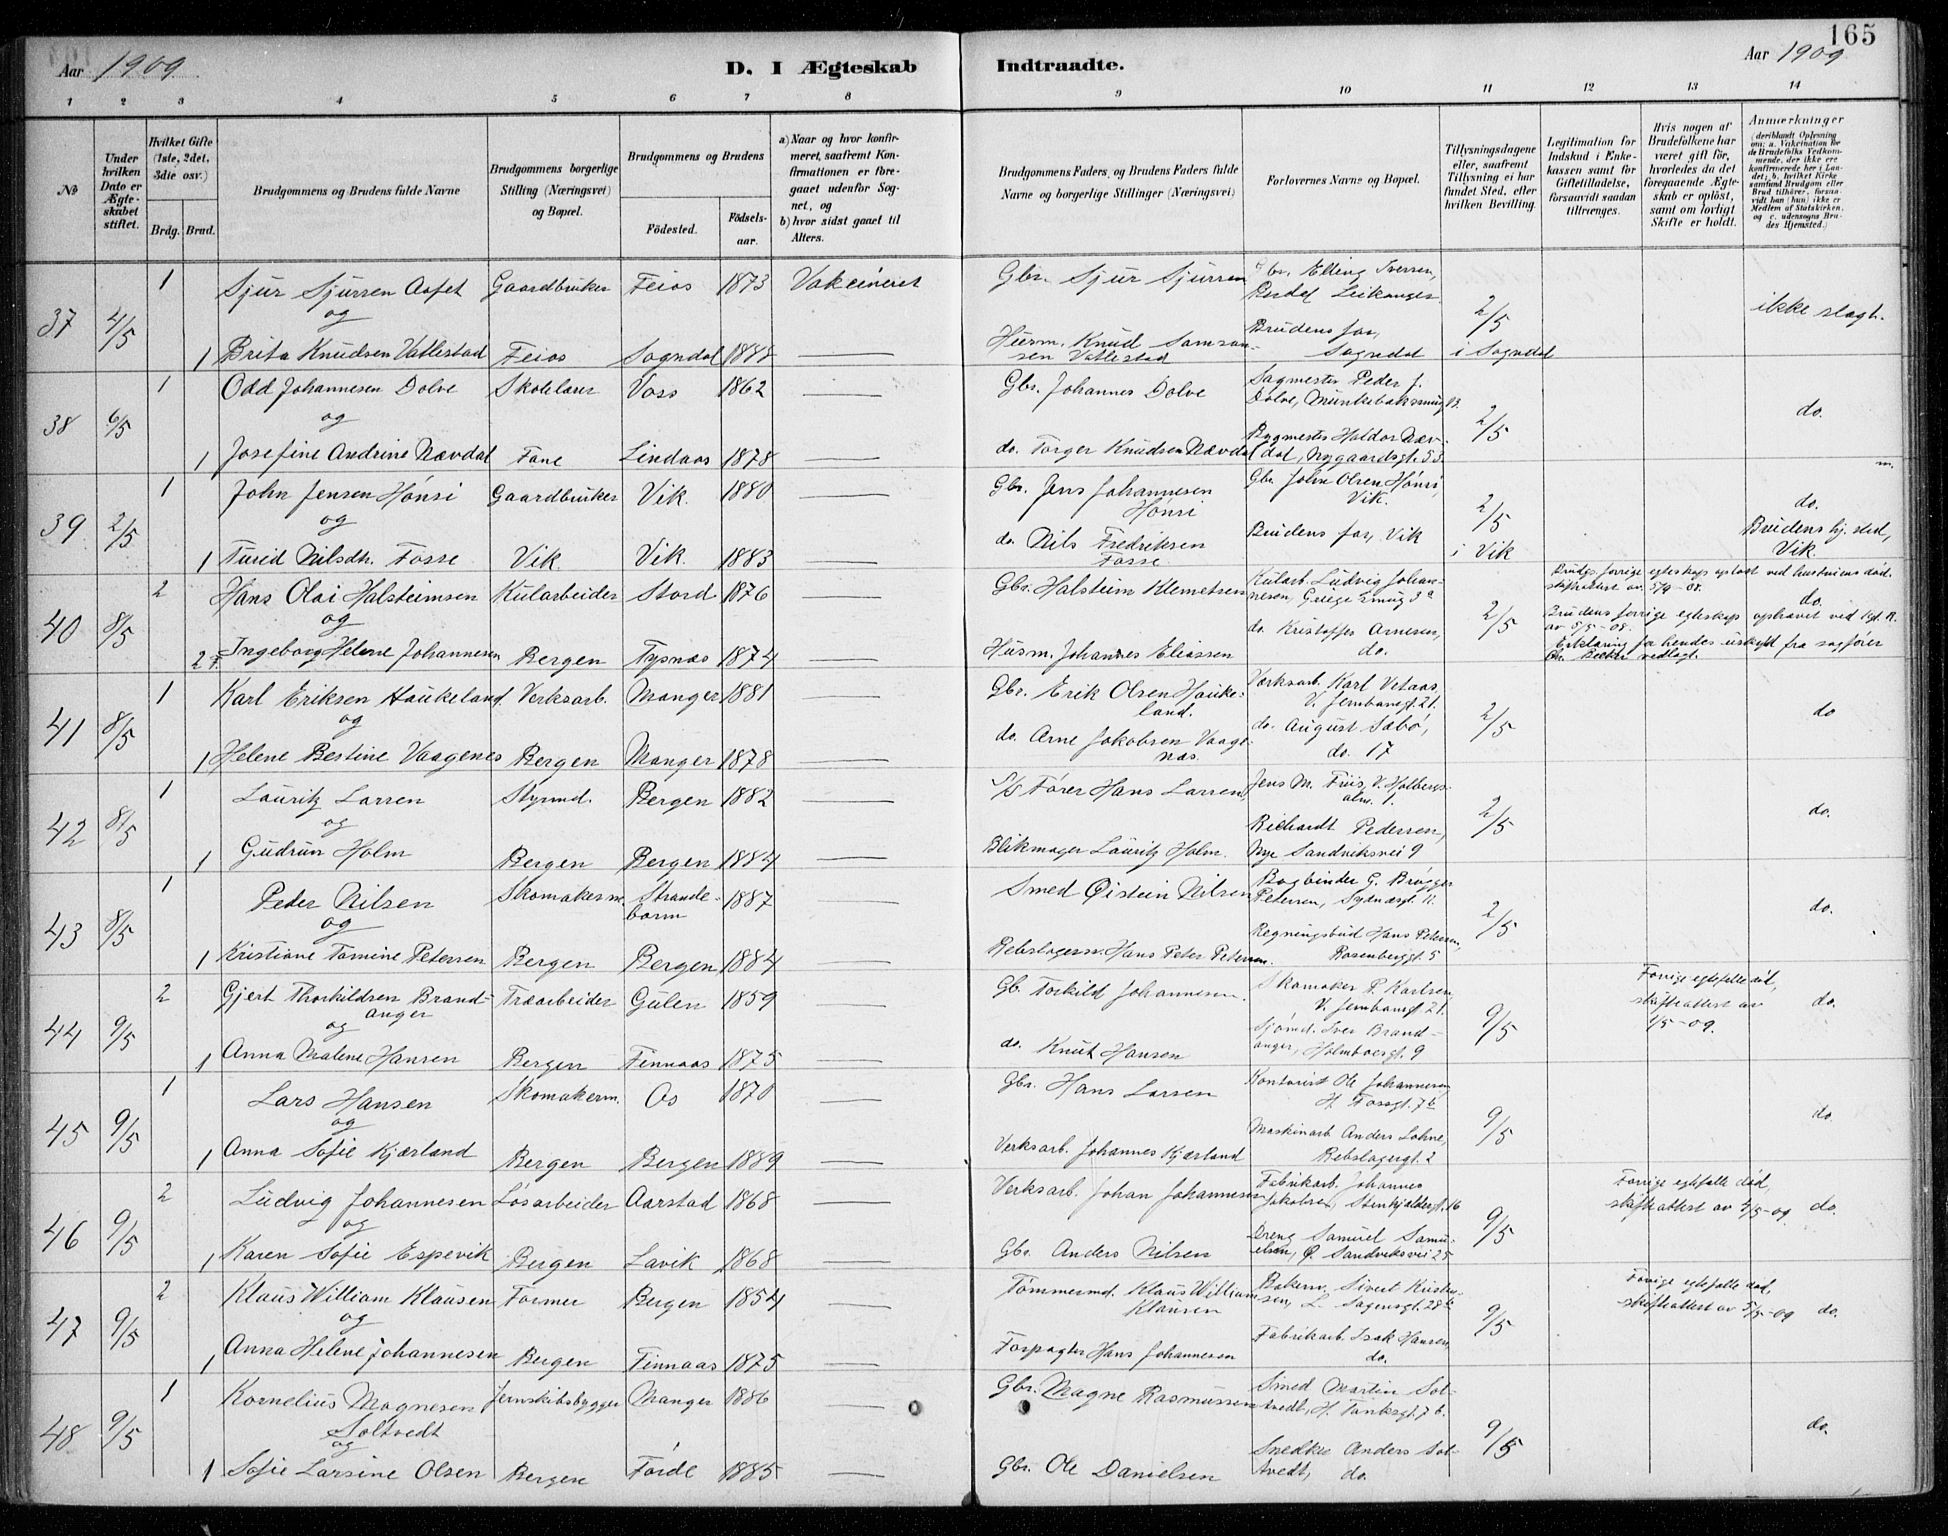 165
Aar 1909
D. I Ægteskab
Indtraadte.
Aar 1909
1 2 3 4 5 6 7 8 9 10 11 12 13 14
№
Under hvilken Dato er Ægteskabet stiftet.
Hvilket Gifte (1ste, 2det, 3die osv.)
Brdg. Brud.
Brudgommens og Brudens fulde Navne
Brudgommens borgerlige Stilling (Næringsvei) og Bopæl.
Brudgommens og Brudens
Födested.
Födselsaar.
a) Naar og hvor konfirmeret, saafremt Konfirmationen er foregaaet udenfor Sognet, og
b) hvor sidst gaaet til Alters.
Brudgommens Faders, og Brudens Faders fulde Navne og borgerlige Stillinger (Næringsvei)
Forlovernes Navne og Bopæl.
Tillysningsdagene eller, saafremt Tillysning ei har fundet Sted, efter hvilken Bevilling.
Legitimation for Indskud i Enkekassen samt for Giftetilladelse, forsaavidt saadan tiltrænges.
Hvis nogen af Brudefolkene har været gift för, hvorledes da det foregaaende Ægteskab er oplöst, samt om lovligt Skifte er holdt.
Anmærkninger
37 4/5 1 Sjur Sjursen Aafet Gaardbruker Feios 1873 Vakcineret Gbr. Sjur Sjursen Gbr. Elling Iversen, Leikanger 2/5 ikke slegt.
og
1 Brita Knudsen Vallestad Feios Sogndal 1888 — Husm. Knud Samsonsen Vallestad Brudens far, Sogndal i Sogndal
38 6/5 1 Odd Johannesen Dolve Skolelærer Voss 1862 — Gbr. Johannes Dolve Sagmester Peder J. Dolve, Munkebaksmug 13. 2/5 do.
og
1 Josefine Andrine Nævdal Fane Lindaas 1878 — do. Torger Knudsen Nævdal Bygmester Haldor Nævdal, Nygaardsgt. 53
39 2/5 1 John Jensen Hønsi Gaardbruker Vik. 1880 — Gbr. Jens Johannesen Hønsi Gbr. John Olsen Hønsi, Vik. 2/5 do.
og
1 Turid Nilsdtr. Fosse Vik. Vik. 1883 — do. Nils Fredriksen Fosse Brudens far, Vik i Vik Brudens hj. sted, Vik
40 8/5 2 Hans Olai Halsteimsen Kularbeider Stord 1876 — Gbr. Halsteim Klemetsen Kularb. Ludvig Johannesen, 2/5 Brudg. forrige egteskap opløst ved hustruens død. skifteattest av 5/9-08. do.
og
2 Ingeborg Helene Johannesen Bergen Tysnæs 1874 — Husm. Johannes Eliassen do. Kristoffer Arnesen, do. Brudens forrige egteskap ophævet ved kgl. R. av 5/5-08. Erklæring for hendes uskyld fra sagfører vedlagt.
41 8/5 1 Karl Eriksen Haukeland. Verksarb. Manger 1881 — Gbr. Erik Olsen Haukeland. Værksarb. Karl Vetaas, V. Jernbanegt. 21. 2/5 do
og
1 Helene Bestine Vaagenes Bergen Manger 1878 — do. Arne Jakobsen Vaagenæs. do. August Sæbø, do. 17
42 8/5 1 Lauritz Larsen Styrmd. Bergen 1882 — S/S Fører Hans Larsen, Jens M. Friis, V. Holbergsalm. 1. 2/5 do.
og
1 Gudrun Holm Bergen Bergen 1884 — Blikmager Lauritz Holm. Richardt Pedersen, Nye Sandviksvei 9
43 8/5 1 Peter Nilsen Skomakerm. Strandebarm 1887 — Smed Øistein Nilsen Bogbinder G. Brøgger Petersen, 2/5 do.
og
1 Kristiane Tomine Petersen Bergen Bergen 1884 — Rebslagerm. Hans Peter Petersen. Regningsbud Hans Petersen, Rosenbergt. 5
44 9/5 2 Gjert Thorkildsen Brandanger Træarbeider Gulen 1859 — Gb. Torkild Johannesen. Skomaker P. Karlsen, V. Jernbanegt 21. 9/5 Forrige egtefelle død, skifteattest av 1/5-09. do.
og
1 Anna Malene Hansen Bergen Finnaas 1875 — do. Knut Hansen Sjømd. Iver Brandanger, Holmboesgt. 9
45 9/5 1 Lars Hansen Skomakerm. Os 1870 — Gbr. Hans Larsen Kontorist Ole Johannesen, H. Fossgt. 7b 9/5 do
og
1 Anna Sofie Kjærland Bergen Bergen 1889 — Verksarb. Johannes Kjærland Maskinarb. Anders Lohne, Rebslagergt. 2
46 9/5 2 Ludvig Johannesen Løsarbeider Aarstad 1868 — Verksarb. Johan Johannesen Fabrikarb. Johannes Jakobsen, Stenkjeldergt. 16 9/5 Forrige egtefelle død, skifteattest av 4/5-09 do.
og
1 Karen Sofie Espevik Bergen Lavik 1868 — Gbr. Anders Nilsen Dreng Samuel Samuelsen, Ø. Sandviksvei 25
47 9/5 2 Klaus William Klausen Former Bergen 1854 — Tømmermd. Klaus William Klausen Bakerm. Sivert Kristensen, L. Sagensgt. 28b 9/5 Forrige egtefelle død, skifteattest av 5/5-09 do.
og
1 Anna Helene Johannesen Bergen Finnaas 1875 — Forpagter Hans Johannesen Fabrikarb. Isak Hansen, do.
48 9/5 1 Kornelius Magnesen Soltvedt Jernskibsbygger Manger 1886 — Gbr. Magne Rasmussen Smed Martin Soltvedt, H. Tanksgt. 7b. 9/5 do.
og
1 Sofie Larsine Olsen Bergen Førde 1885 — Gbr. Ole Danielsen Snedker Anders Soltvedt, do.